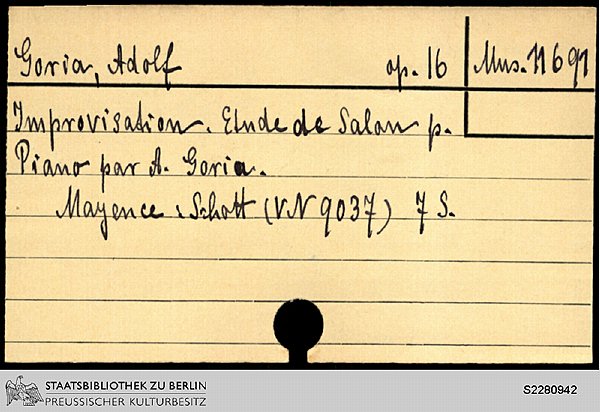 Goria, Adolf op. 16 Mus. 11691
Improvisation. Etude de Salon p.
Piano par A. Goria.
Mayence : Schott (VN 9037) 7 S.
STAATSBIBLIOTHEK ZU BERLIN
PREUSSISCHER KULTURBESITZ
S2280942